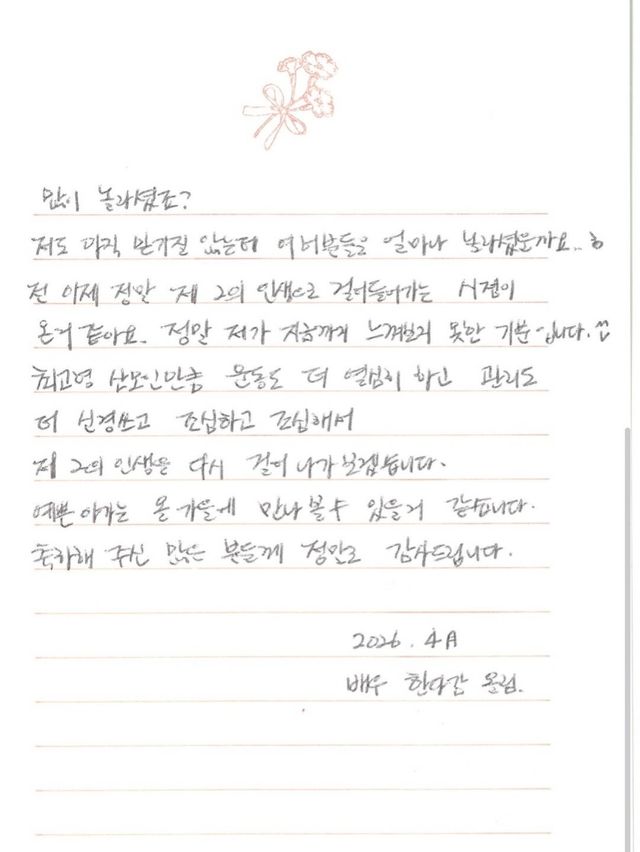 많이 놀라셨죠?
저도 아직 믿기질 않는데 여러분들은 얼마나 놀라셨을까요..ㅎ
전 이제 정말 제 2의 인생으로 걸어들어가는 시점이
온거 같아요. 정말 제가 지금까지 느껴보지 못한 기분입니다.^^
최고령 산모인만큼 운동도 더 열심히 하고 관리도
더 신경쓰고 조심하고 조심해서
제 2의 인생을 다시 걸어 나가 보겠습니다.
예쁜 아가는 올 가을에 만나 볼 수 있을거 같습니다.
축하해 주신 많은 분들께 정말로 감사드립니다.
2026. 4月
배우 한다감 올림.